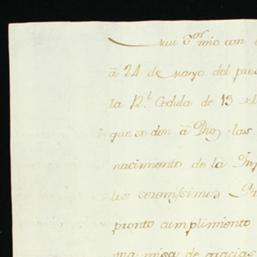 Mui S.or mio con
à 24 de março del pres
la R.l Cedula de 13 de
que se den à Dios las
nacimiento de la Inf
los serenissimos Pr
pronto cumplimiento
una misa de gracias